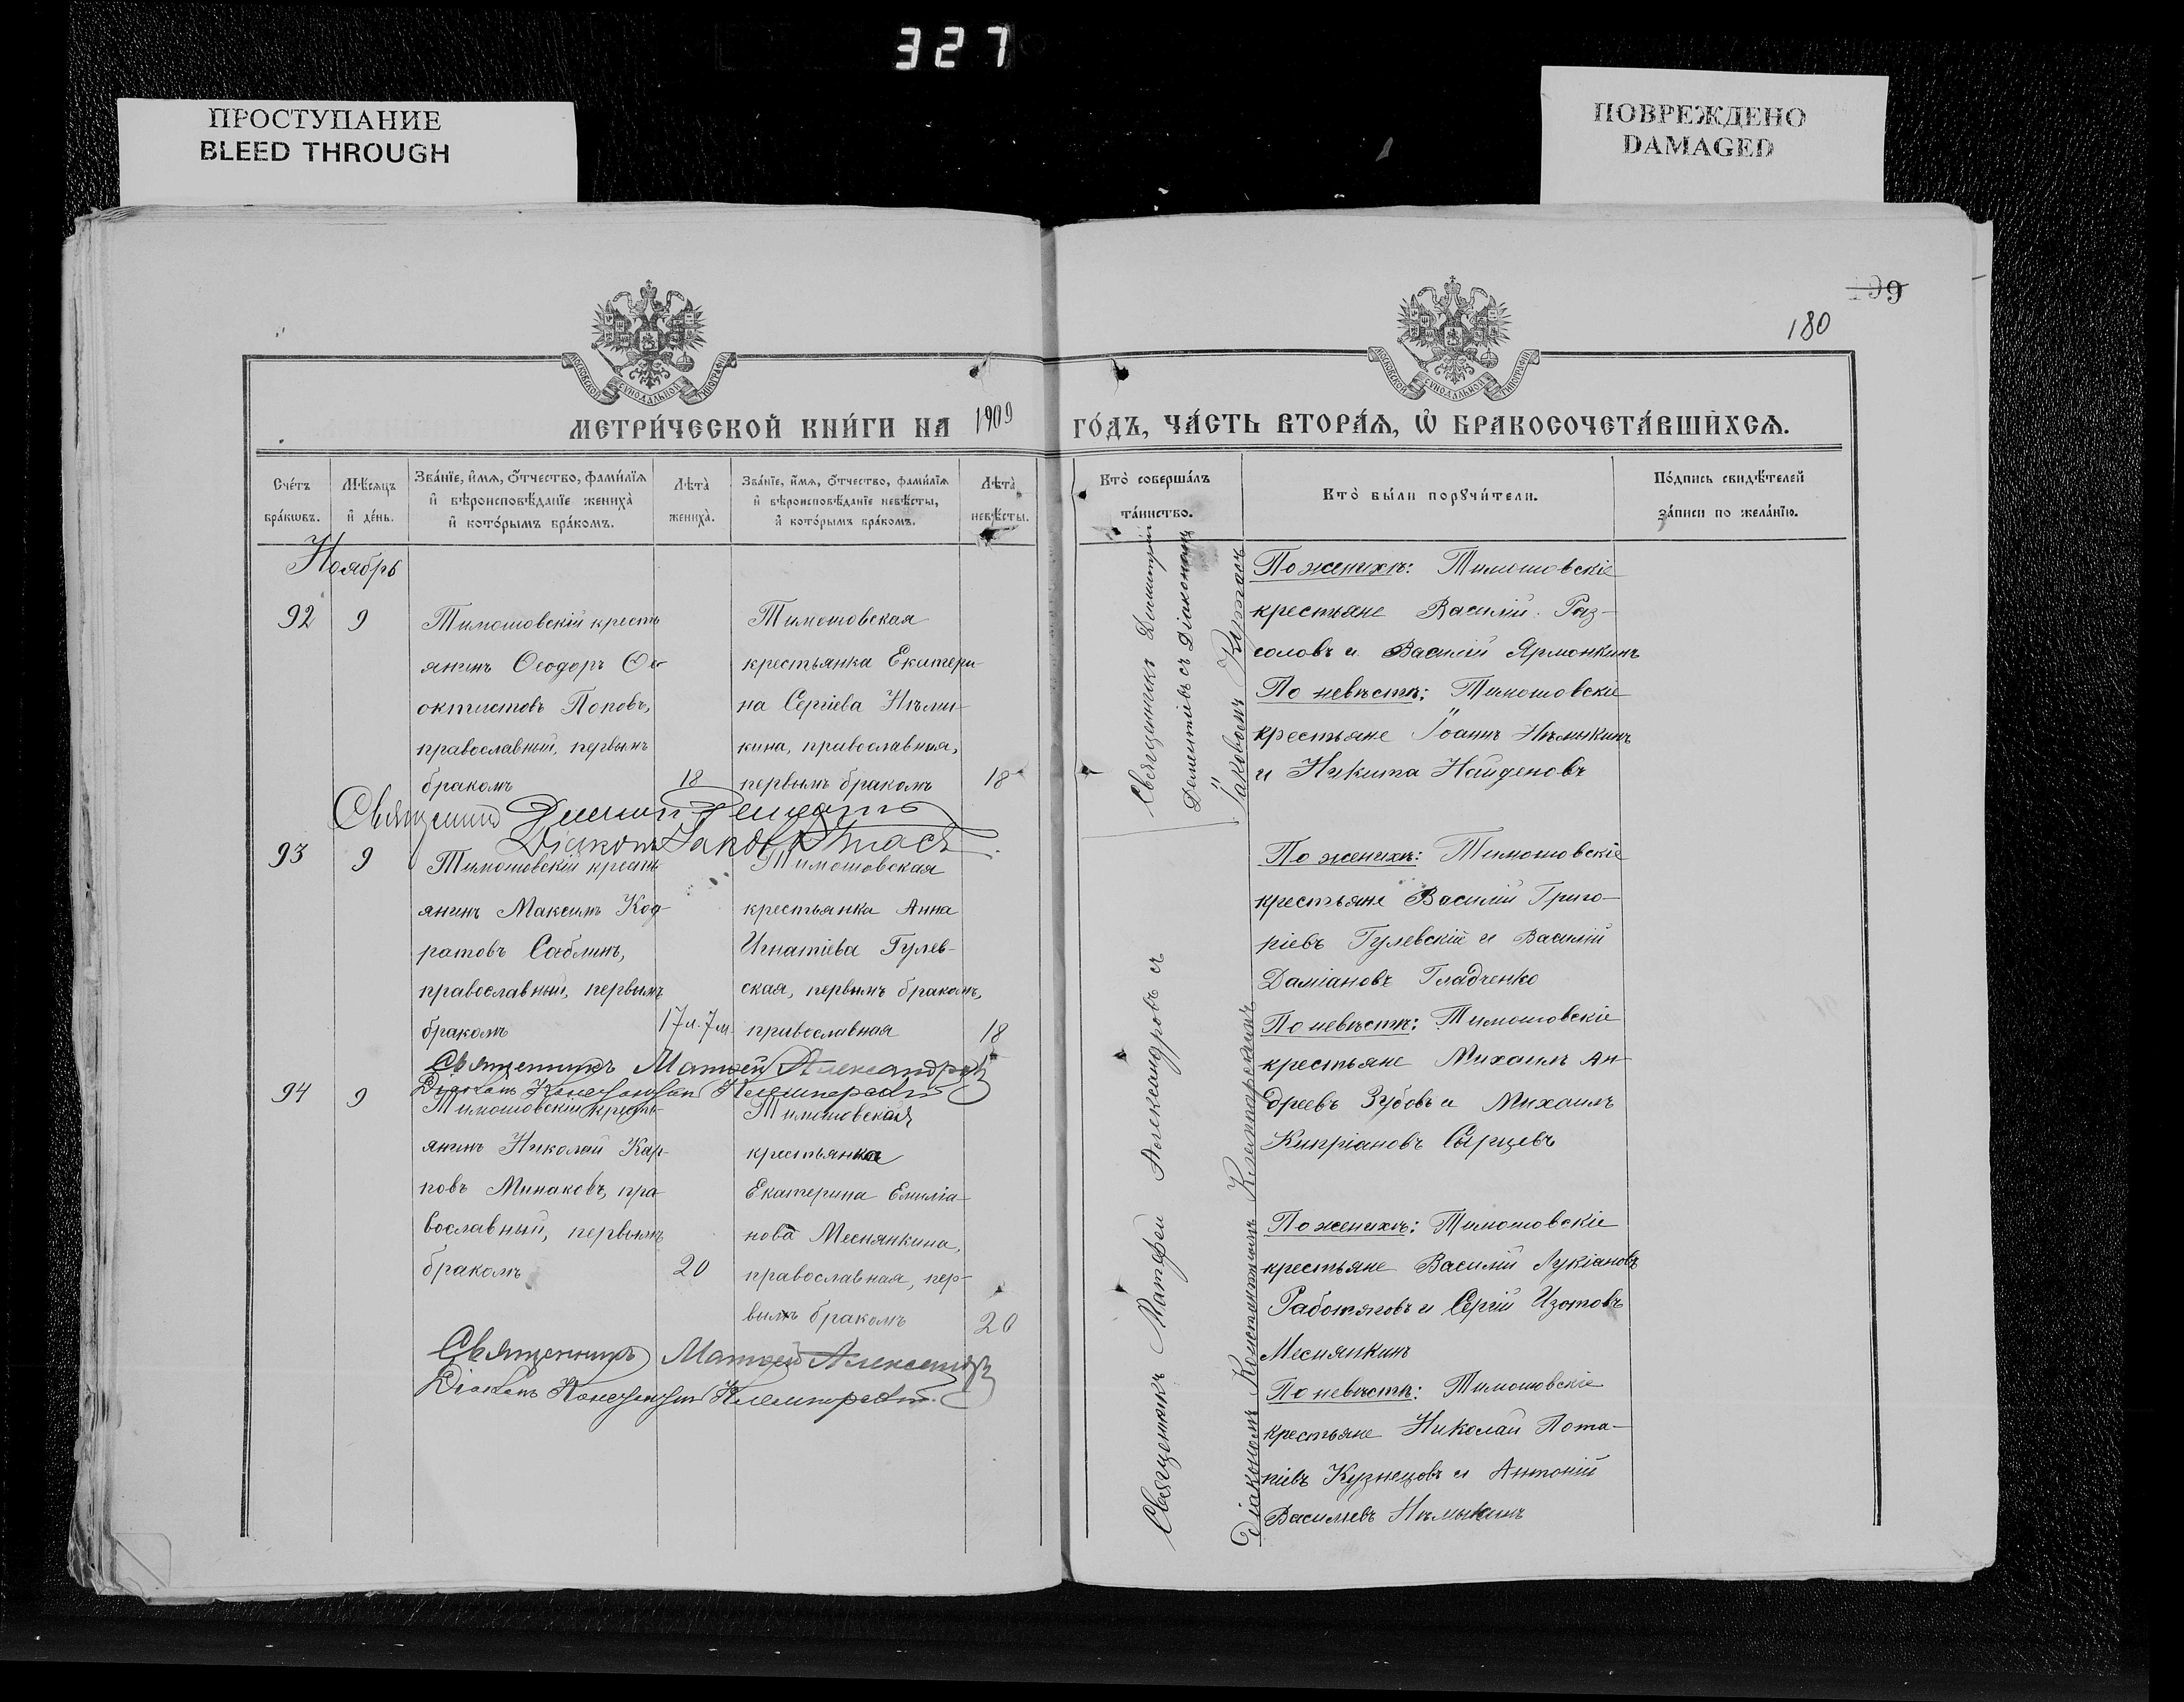 327
ПРОСТУПАНИЕ
BLEED THROUGH
ПОВРЕЖДЕНО
DAMAGED
199
180
МОСКОВСКОЙ СѴНОДАЛЬНОЙ ТИПОГРАФІИ
МОСКОВСКОЙ СѴНОДАЛЬНОЙ ТИПОГРАФІИ
МЕТРИ́ЧЕСКОЙ КНИ́ГИ НА 1909 ГО́ДЪ, ЧА́СТЬ ВТОРА́Ѧ, Ѽ БРАКОСОЧЕТА́ВШИХСѦ.
Сче́тъ
бра́кѡвъ.
Мѣ́сѧцъ
и҆ де́нь.
Зва́нїе, и҆́мѧ, ѻ҆́тчество, фами́лїѧ
и҆ вѣроисповѣ́данїе жениха̀
и҆ кото́рымъ бра́комъ.
Лѣ́та̀
жениха̀.
Зва́нїе, и҆́мѧ, ѻ҆́тчество, фами́лїѧ
и҆ вѣроисповѣ́данїе невѣ́сты,
и҆ кото́рымъ бра́комъ.
Лѣ́та̀
невѣ́сты.
Кто̀ соверша́лъ
та́инство.
Кто̀ бы́ли порꙋчи́тели.
По́дпись свидѣ́телей
за́писи по жела́нїю.
Ноябрь
92
9
Тимошовскій кресть
янинъ Ѳеодоръ Ѳе-
октистовъ Поповъ,
православный, первымъ
бракомъ
18
Тимошовская
крестьянка Екатери-
на Сергіева Нѣмы-
кина, православная,
первымъ бракомъ
18
Священникъ Димитрій
Дометіевъ съ Діакономъ
Іаковомъ
По женихѣ: Тимошовскіе
крестьяне Василій Раз-
соловъ и Василій Ярмонкинъ
По невѣстѣ: Тимошовскіе
крестьяне Іоаннъ Нѣмыкинъ
и Никита Найденовъ
Священникъ
Діаконъ Іаковъ
93
9
Тимошовскій кресть
янинъ Максимъ Код-
ратовъ Саблинъ,
православный, первымъ
бракомъ
17 л. 7 м.
Тимошовская
крестьянка Анна
Игнатіева Гулев-
ская, первымъ бракомъ,
православная
18
По женихѣ: Тимошовскіе
крестьяне Василій Григо-
ріевъ Гулевскій и Василій
Даміановъ Гладченко
По невѣстѣ: Тимошовскіе
крестьяне Михаилъ Ан-
дреевъ Зубовъ и Михаилъ
Кипріановъ Сырцевъ
Священникъ Матѳей Александровъ
Діаконъ Константинъ
Священникъ Матфей Александровъ съ
Діакономъ Константиномъ
94
9
Тимошовскій кресть-
янинъ Николай Кар-
повъ Минаковъ, пра-
вославный, первымъ
бракомъ
20
Тимошовская
крестьянка
Екатерина Емиліа-
нова Меснянкина,
православная, пер-
вымъ бракомъ
20
По женихѣ: Тимошовскіе
крестьяне Василій Лукіановъ
Работяговъ и Сергій Изотовъ
Меснянкинъ
По невѣстѣ: Тимошовскіе
крестьяне Николай Пота-
піевъ Кузнецовъ и Антоній
Василіевъ Нѣмыкинъ
Священникъ Матѳей Александровъ
Діаконъ Константинъ